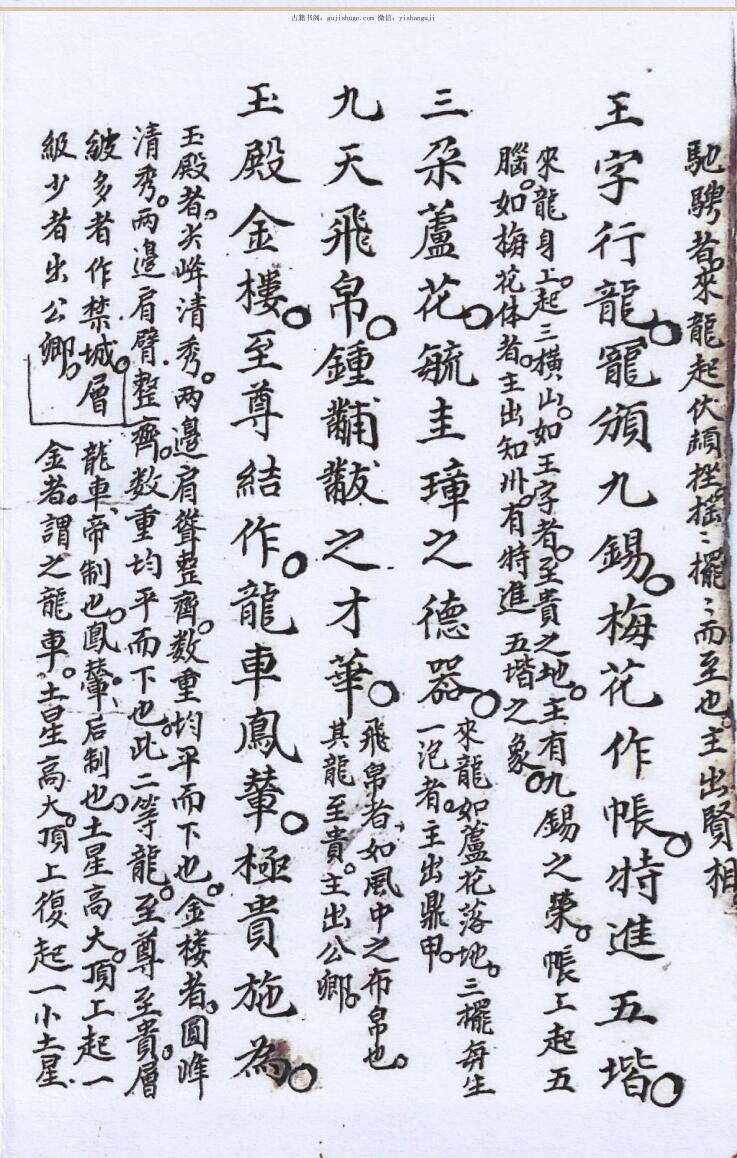 古籍书阁：gujishuge.com 微信：yishanguji
馳騁者。來龍起伏頓挫。搖〻擺〻而至也。主出賢相。
王字行龍。寵頒九錫。梅花作帳。特進五堦。
來龍身上。起三橫山。如王字者。至貴之地。主有九錫之榮。帳上起五
腦。如梅花体者。主出知州。有特進五堦之象。
三朵蘆花。毓圭璋之德器。
來龍如蘆花落地。三擺每生
一泡者。主出鼎甲。
九天飛帛。鍾黼黻之才華。
飛帛者、如風中之布帛也。
其龍至貴。主出公卿。
玉殿金樓。至尊結作。龍車鳳輦。極貴施為。
玉殿者。尖峰清秀。两邊肩聳整齊。数重均平而下也。金楼者。圓峰
清秀。两邊肩臂整齊。数重均平而下也。此二等龍。至尊至貴。層
級多者作禁城。層
級少者出公卿。
龍車、帝制也。鳳輦、后制也。土星高大。頂上起一
金者。謂之龍車。土星高大。頂上復起一小土星